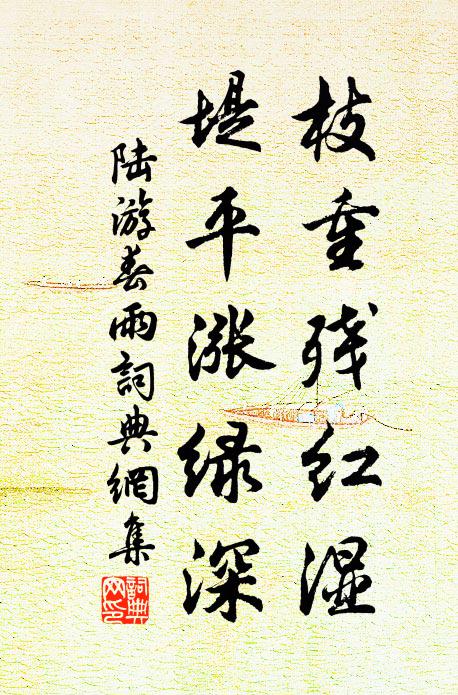 枝重残红湿
堤平涨绿深
陆游春雨詞典網集
詞典网印